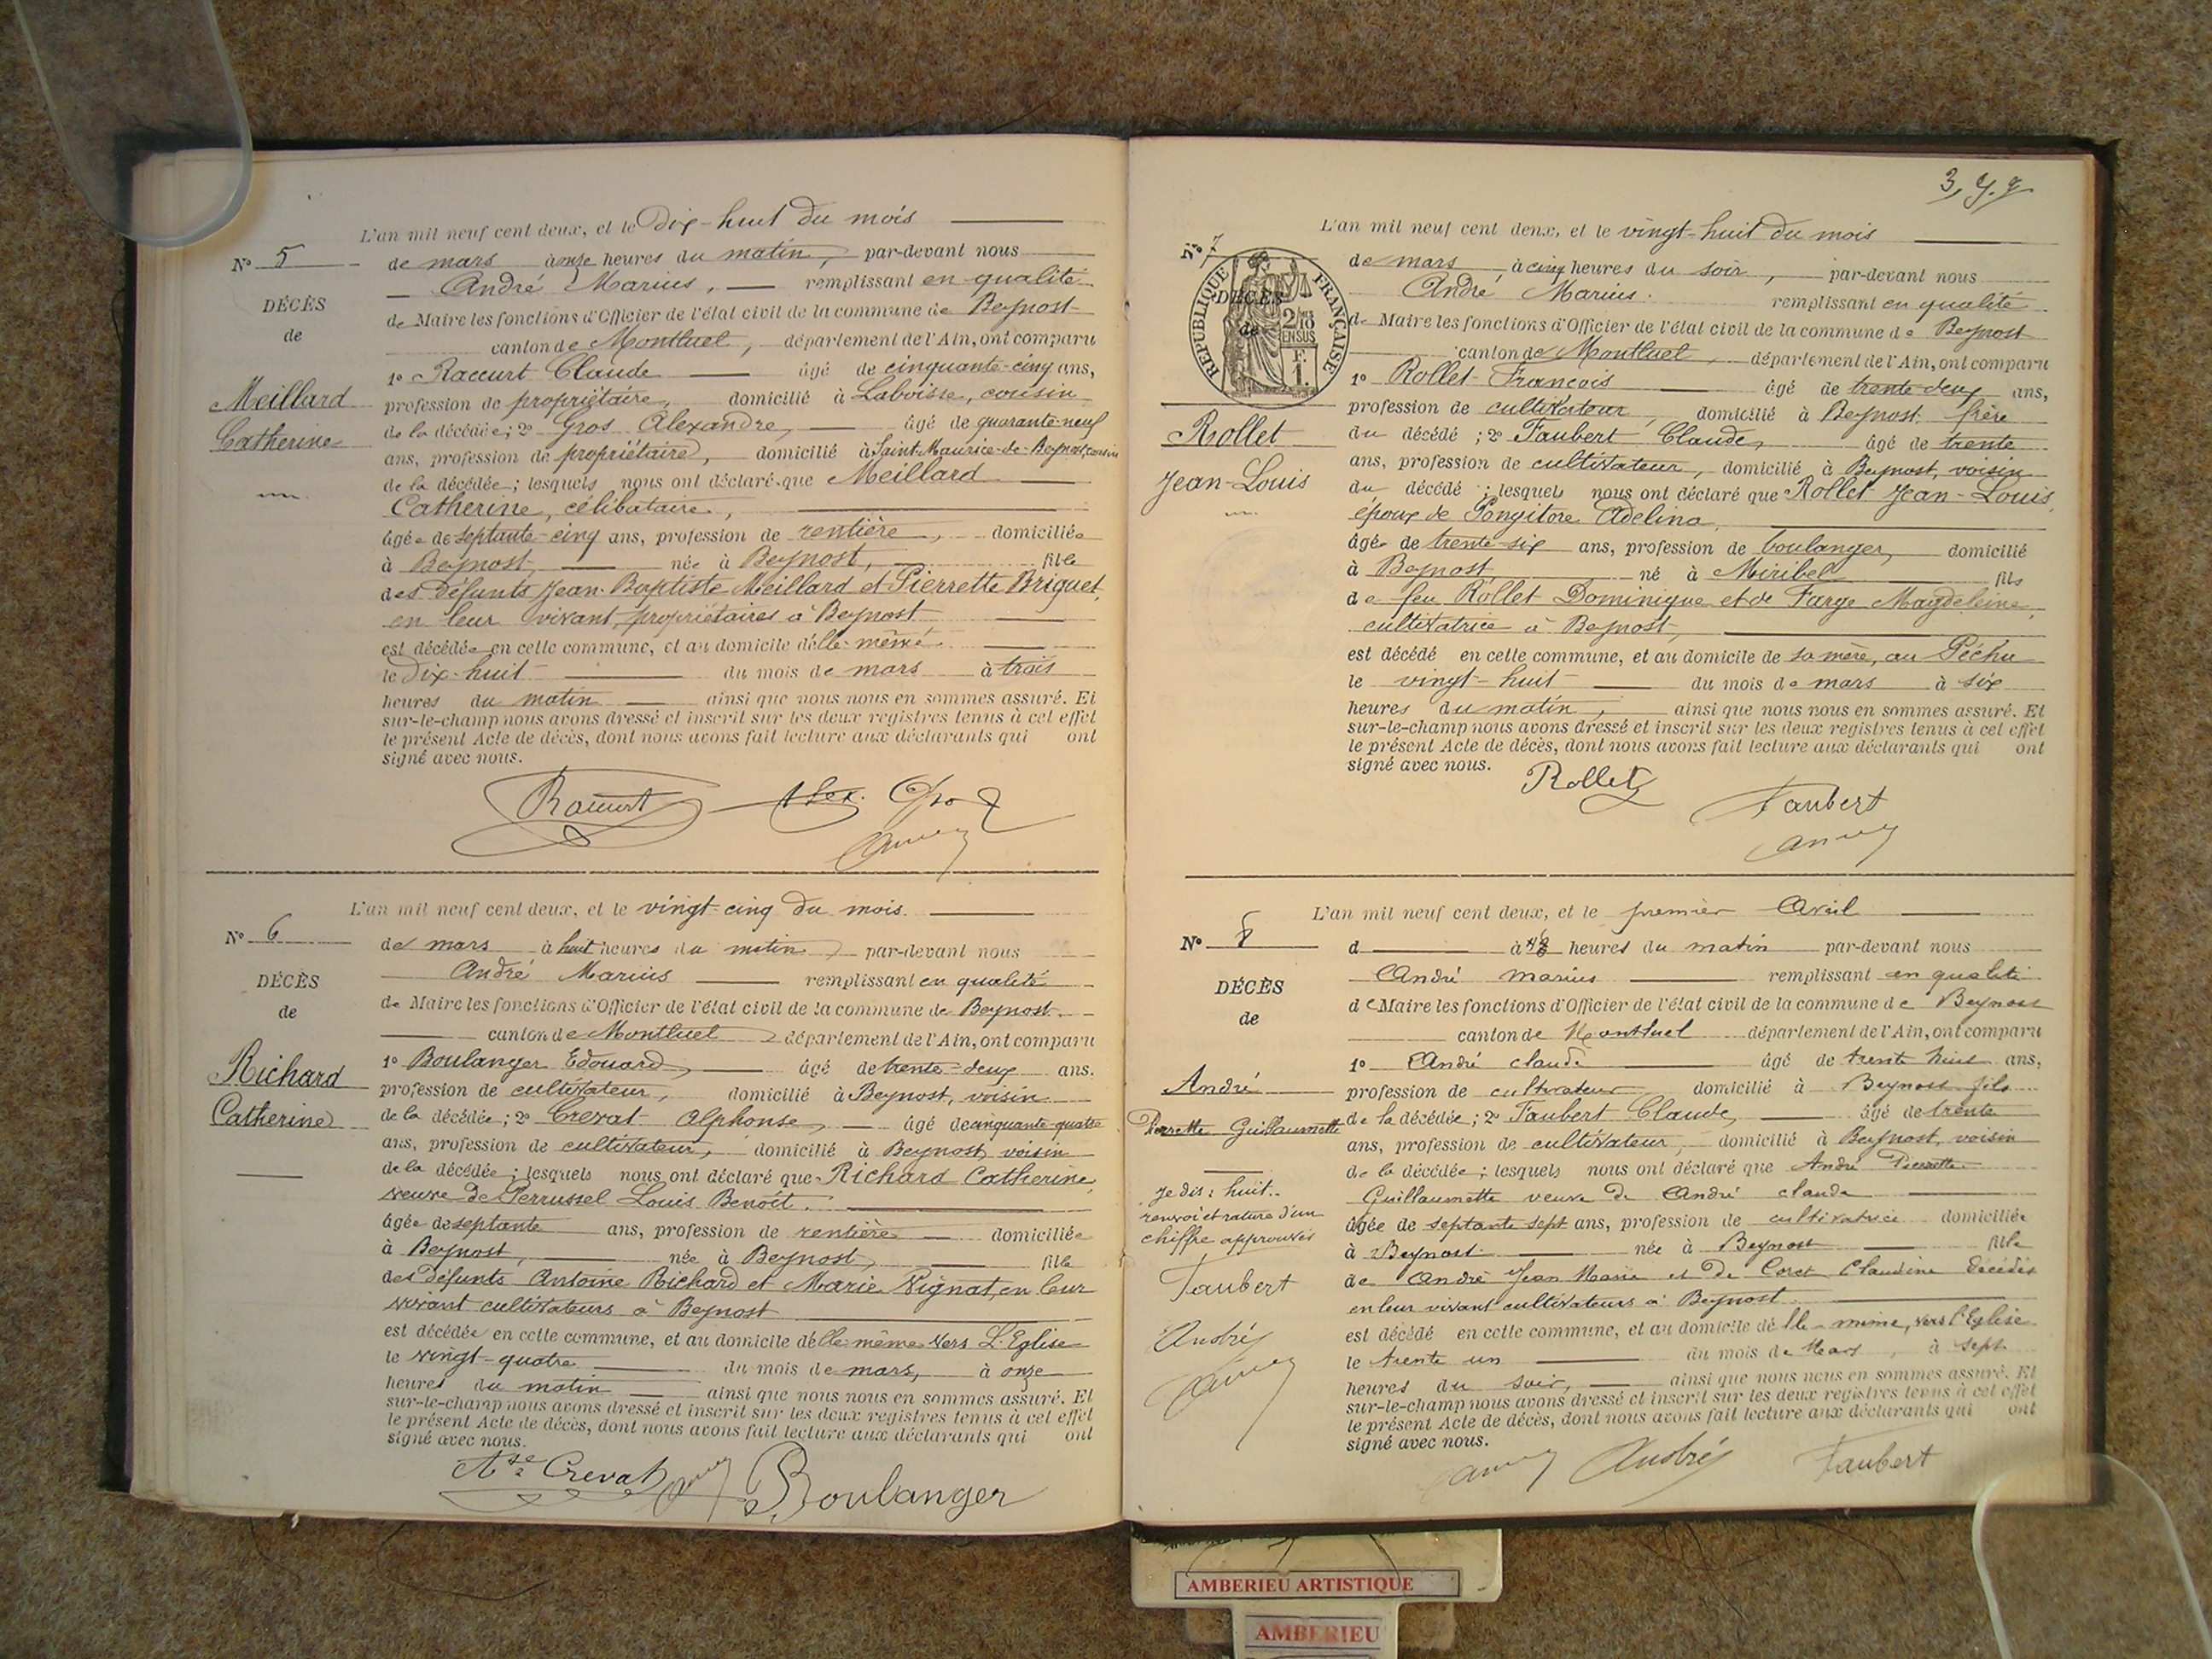 L'an mil neuf cent deux, et le Dix-huit du mois
No 5
de mars à onze heures du matin, par-devant nous
André Marius, remplissant en qualité
DÉCÈS
de Maire les fonctions d'Officier de l'état civil de la commune de Beynost
de
canton de Montluel, département de l'Ain, ont comparu
1o Raccurt Claude âgé de cinquante-cinq ans,
Meillard
profession de propriétaire, domicilié à Laboisse, cousin
Catherine
de la décédée; 2o Gros Alexandre, âgé de quarante-neuf
ans, profession de propriétaire, domicilié à Saint-Maurice-de-Beynost, cousin
de la décédée; lesquels nous ont déclaré que Meillard
Catherine, célibataire,
âgée de septante-cinq ans, profession de rentière, domiciliée
à Beynost, née à Beynost, fille
des défunts Jean-Baptiste Meillard et Pierrette Briguet,
en leur vivant, propriétaires à Beynost,
est décédée en cette commune, et au domicile d'elle-même
le Dix-huit du mois de mars à trois
heures du matin ainsi que nous nous en sommes assuré. Et
sur-le-champ nous avons dressé et inscrit sur les deux registres tenus à cet effet
le présent Acte de décès, dont nous avons fait lecture aux déclarants qui ont
signé avec nous.
Raccurt Alex. Gros
L'an mil neuf cent deux, et le vingt-cinq du mois
No 6
de mars à huit heures du matin, par-devant nous
André Marius remplissant en qualité
DÉCÈS
de Maire les fonctions d'Officier de l'état civil de la commune de Beynost
de
canton de Montluel, département de l'Ain, ont comparu
Richard
1o Boulanger Edouard, âgé de trente-deux ans.
profession de cultivateur, domicilié à Beynost, voisin
Catherine
de la décédée; 2o Crevat Alphonse, âgé de cinquante-quatre
ans, profession de cultivateur, domicilié à Beynost, voisin
de la décédée; lesquels nous ont déclaré que Richard Catherine,
veuve de Perrussel Louis Benoît.
âgée de septante ans, profession de rentière domiciliée
à Beynost, née à Beynost, fille
des défunts Antoine Richard et Marie Vignat, en leur
vivant cultivateurs à Beynost
est décédée en cette commune, et au domicile d'elle-même vers L'Eglise
le vingt-quatre du mois de mars, à onze
heures du matin ainsi que nous nous en sommes assuré. Et
sur-le-champ nous avons dressé et inscrit sur les deux registres tenus à cet effet
le présent Acte de décès, dont nous avons fait lecture aux déclarants qui ont
signé avec nous.
Crevat Boulanger
L'an mil neuf cent deux, et le vingt-huit du mois
No 7
de mars, à cinq heures du soir, par-devant nous
André Marius. remplissant en qualité
RÉPUBLIQUE FRANÇAISE
DÉCÈS
de
2/10 EN SUS
F. 1.
de Maire les fonctions d'Officier de l'état civil de la commune de Beynost
canton de Montluel, département de l'Ain, ont comparu
1o Rollet François âgé de trente-deux ans,
profession de cultivateur, domicilié à Beynost, frère
Rollet
du décédé; 2o Faubert Claude, âgé de trente
ans, profession de cultivateur, domicilié à Beynost, voisin
Jean-Louis
du décédé; lesquels nous ont déclaré que Rollet Jean-Louis,
époux de Pongitore Adelina,
âgé de trente-six ans, profession de boulanger, domicilié
à Beynost né à Miribel fils
de feu Rollet Dominique et de Farge Magdeleine,
cultivatrice à Beynost,
est décédé en cette commune, et au domicile de sa mère, au Péchu
le vingt-huit du mois de mars à six
heures du matin, ainsi que nous nous en sommes assuré. Et
sur-le-champ nous avons dressé et inscrit sur les deux registres tenus à cet effet
le présent Acte de décès, dont nous avons fait lecture aux déclarants qui ont
signé avec nous.
Rollet Faubert
L'an mil neuf cent deux, et le premier Avril
No 8
d à heures du matin par-devant nous
André marius remplissant en qualité
DÉCÈS
de Maire les fonctions d'Officier de l'état civil de la commune de Beynost
de
canton de Montluel département de l'Ain, ont comparu
1o André claude âgé de trente huit ans,
André
profession de cultivateur domicilié à Beynost fils
Pierrette Guillaumette
de la décédée; 2o Faubert Claude, âgé de trente
ans, profession de cultivateur, domicilié à Beynost, voisin
de la décédée; lesquels nous ont déclaré que André Pierrette
Guillaumette veuve de André claude
âgée de septante sept ans, profession de cultivatrice domiciliée
à Beynost née à Beynost fille
de André Jean Marie et de Coret Claudine décédés
en leur vivant cultivateurs à Beynost
est décédé en cette commune, et au domicile d'elle-même, vers l'Eglise
le trente un du mois de Mars, à sept
heures du soir, ainsi que nous nous en sommes assuré. Et
sur-le-champ nous avons dressé et inscrit sur les deux registres tenus à cet effet
le présent Acte de décès, dont nous avons fait lecture aux déclarants qui ont
signé avec nous.
André Faubert
Je dis: huit.
renvoi et rature d'un
chiffre approuvés
Faubert
André
AMBERIEU ARTISTIQUE
AMBERIEU